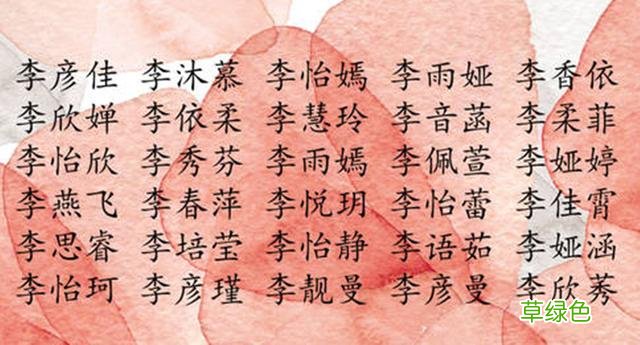 李彦佳 李沐慕 李怡嫣 李雨娅 李香依
李欣婵 李依柔 李慧玲 李音菡 李柔菲
李怡欣 李秀芬 李雨嫣 李佩萱 李娅婷
李燕飞 李春萍 李悦玥 李怡蕾 李佳霄
李思睿 李培莹 李怡静 李语茹 李娅涵
李怡珂 李彦瑾 李靓曼 李彦曼 李欣莠
草绿色